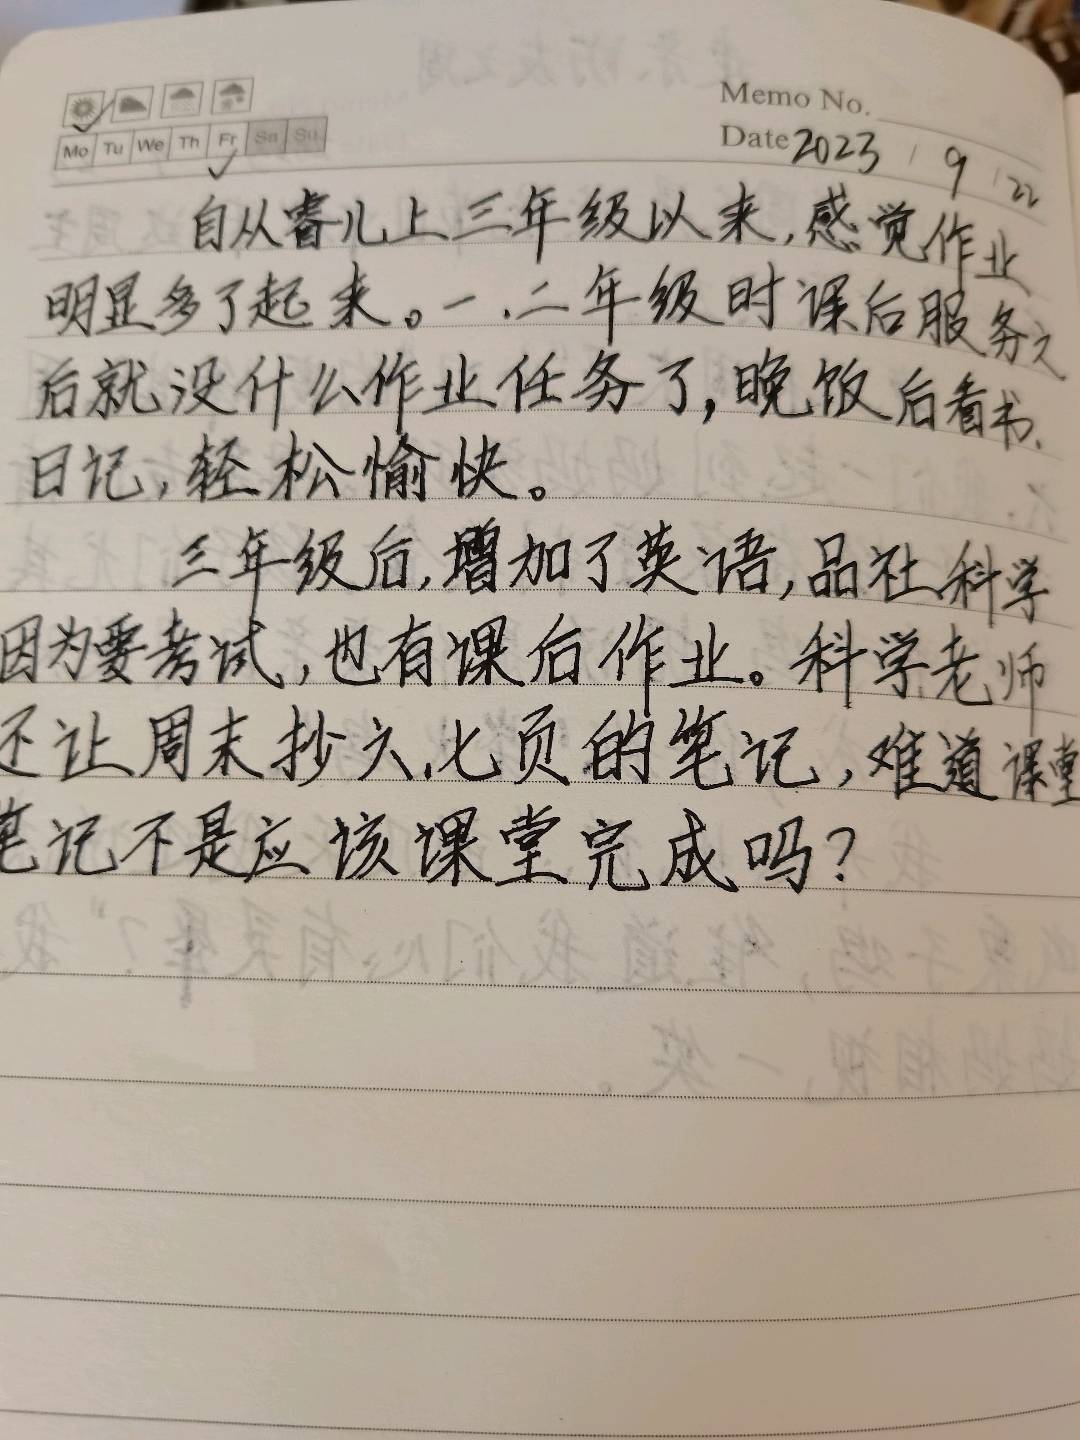 Memo No.
Mo Tu We Th Fr Sa Su
Date 2023 / 9 / 22
自从睿儿上三年级以来,感觉作业
明显多了起来。一.二年级时课后服务之
后就没什么作业任务了,晚饭后看书.
日记,轻松愉快。
三年级后,增加了英语,品社.科学
因为要考试,也有课后作业。科学老师
还让周末抄六.七页的笔记,难道课堂
笔记不是应该课堂完成吗?